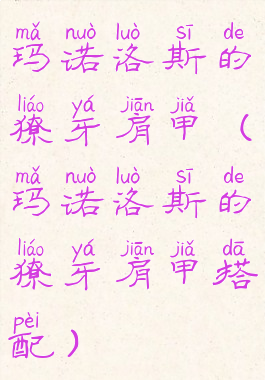 mǎ nuò luò sī de
玛诺洛斯的
liáo yá jiān jiǎ
獠牙肩甲（
mǎ nuò luò sī de
玛诺洛斯的
liáo yá jiān jiǎ dā
獠牙肩甲搭
pèi
配）